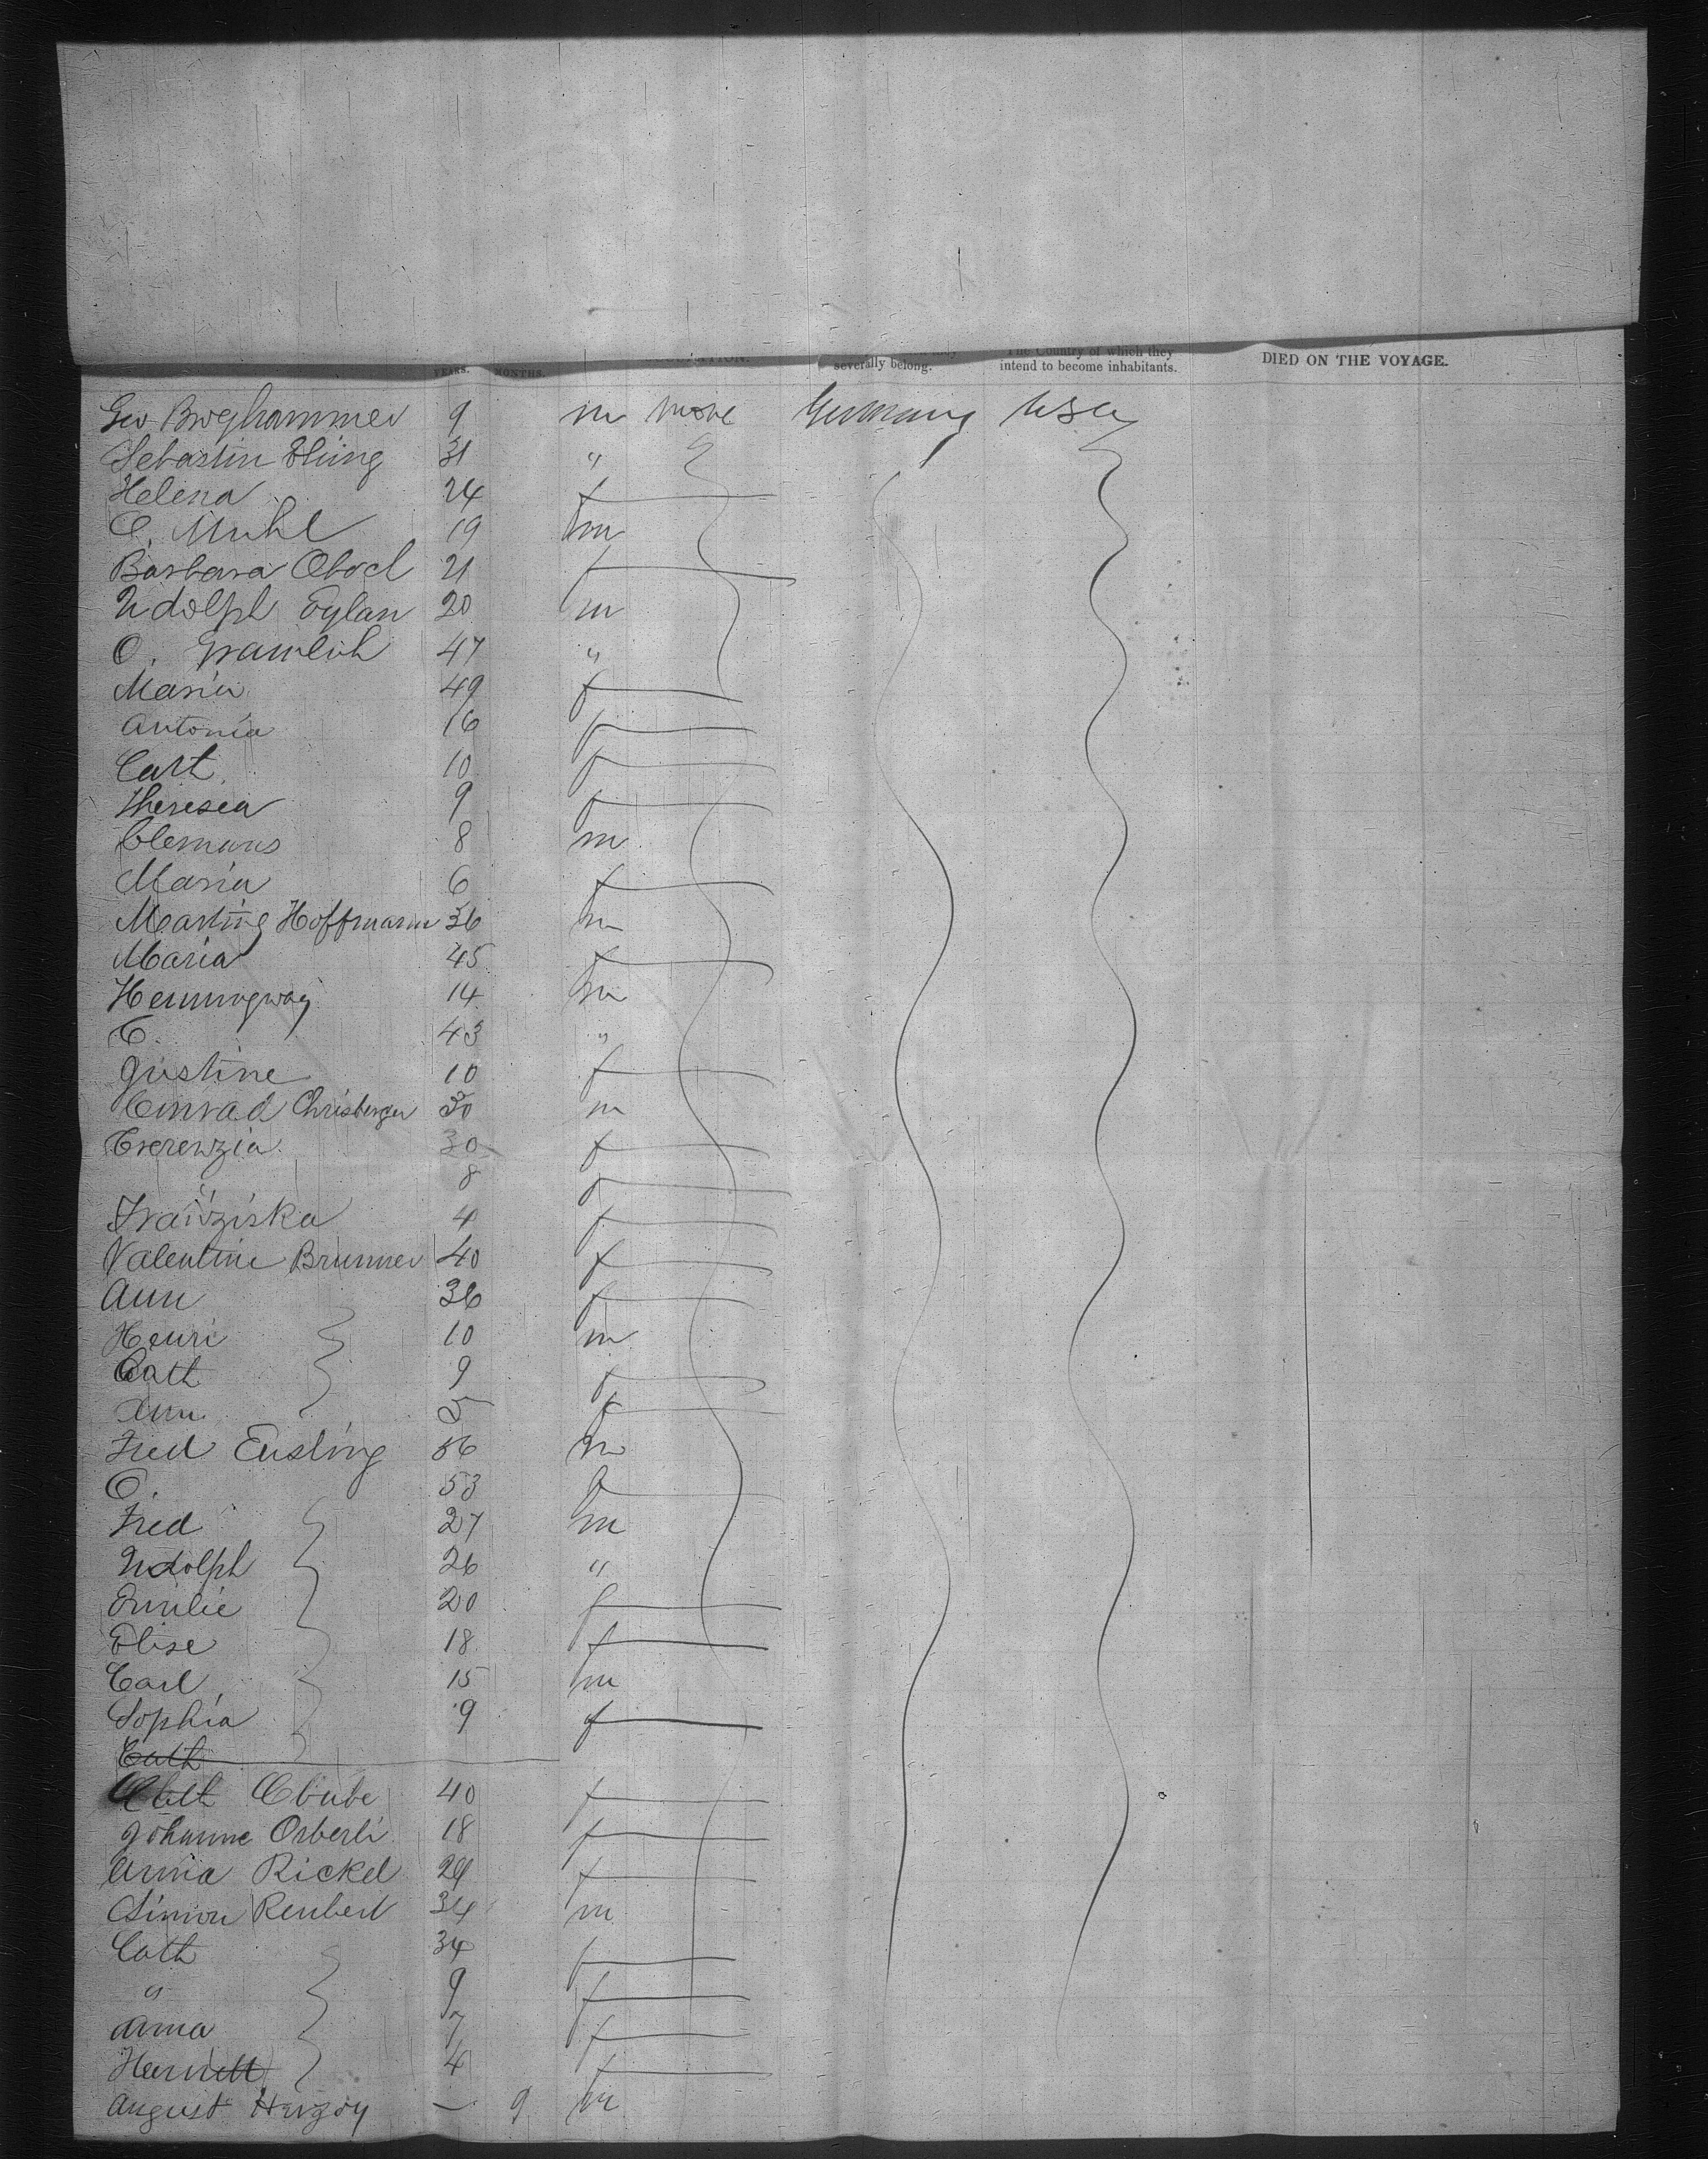 YEARS. MONTHS. OCCUPATION. severally belong. The Country of which they intend to become inhabitants. DIED ON THE VOYAGE.
Geo Broghammer 9 m none Germany USA
Sebastin Ehing 31 "
Helena 24 f
C. Muhl 19 m
Barbara Obocl 21 f
Udolph Eylan 20 m
O. Gramlich 47 "
Maria 49 f
Antonia 16 f
Cath 10 f
Theresia 9 f
Clemens 8 m
Maria 6 f
Marting Hoffmann 36 m
Maria 45 f
Hemmingway 14 m
C. 43 "
Justine 10 f
Conrad Chrisberger 30 m
Crerenzia 30 f
" 8 f
Franziska 4 f
Valentine Brunner 40 f
Ann 36 f
Henri 10 m
Cath 9 f
Ann 5 f
Fred Eusling 56 m
C. 53 f
Fred 27 m
Udolph 26 "
Emilie 20 f
Elise 18 f
Carl 15 m
Sophia 9 f
Cath
Cath Cbube 40 f
Johanne Orberli 18 f
Anna Rickel 24 f
Simon Reubert 34 m
Cath 34 f
" 9 f
Anna 7 f
4 f
August Herzoy — 9 m